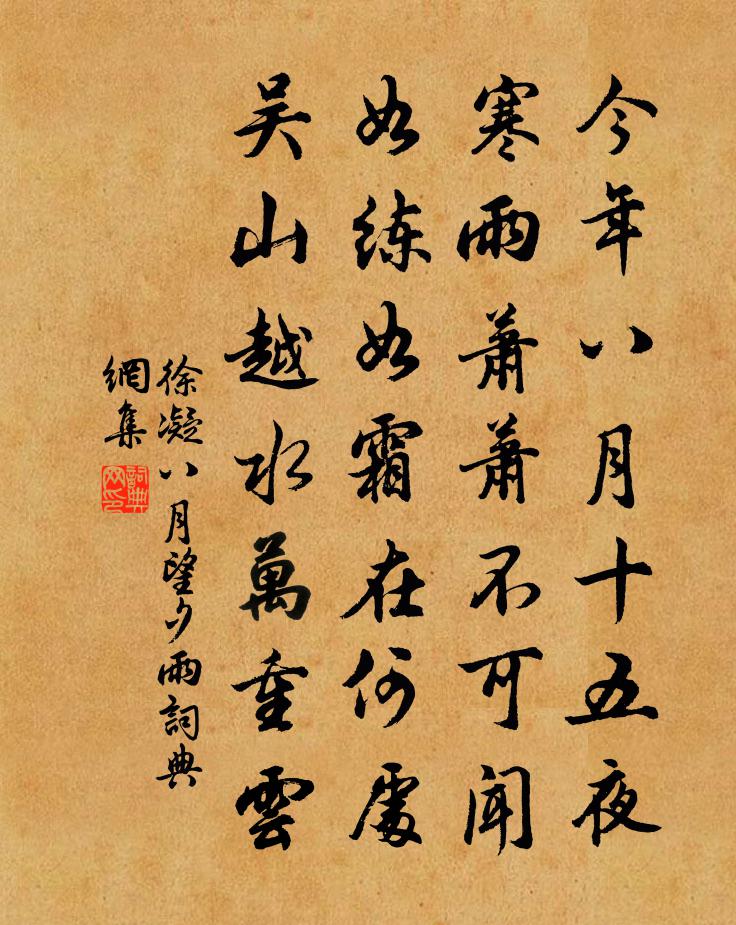 今年八月十五夜
寒雨蕭蕭不可聞
如练如霜在何處
吴山越水萬重雲
徐凝八月望夕雨詞典
網集
詞典
网印